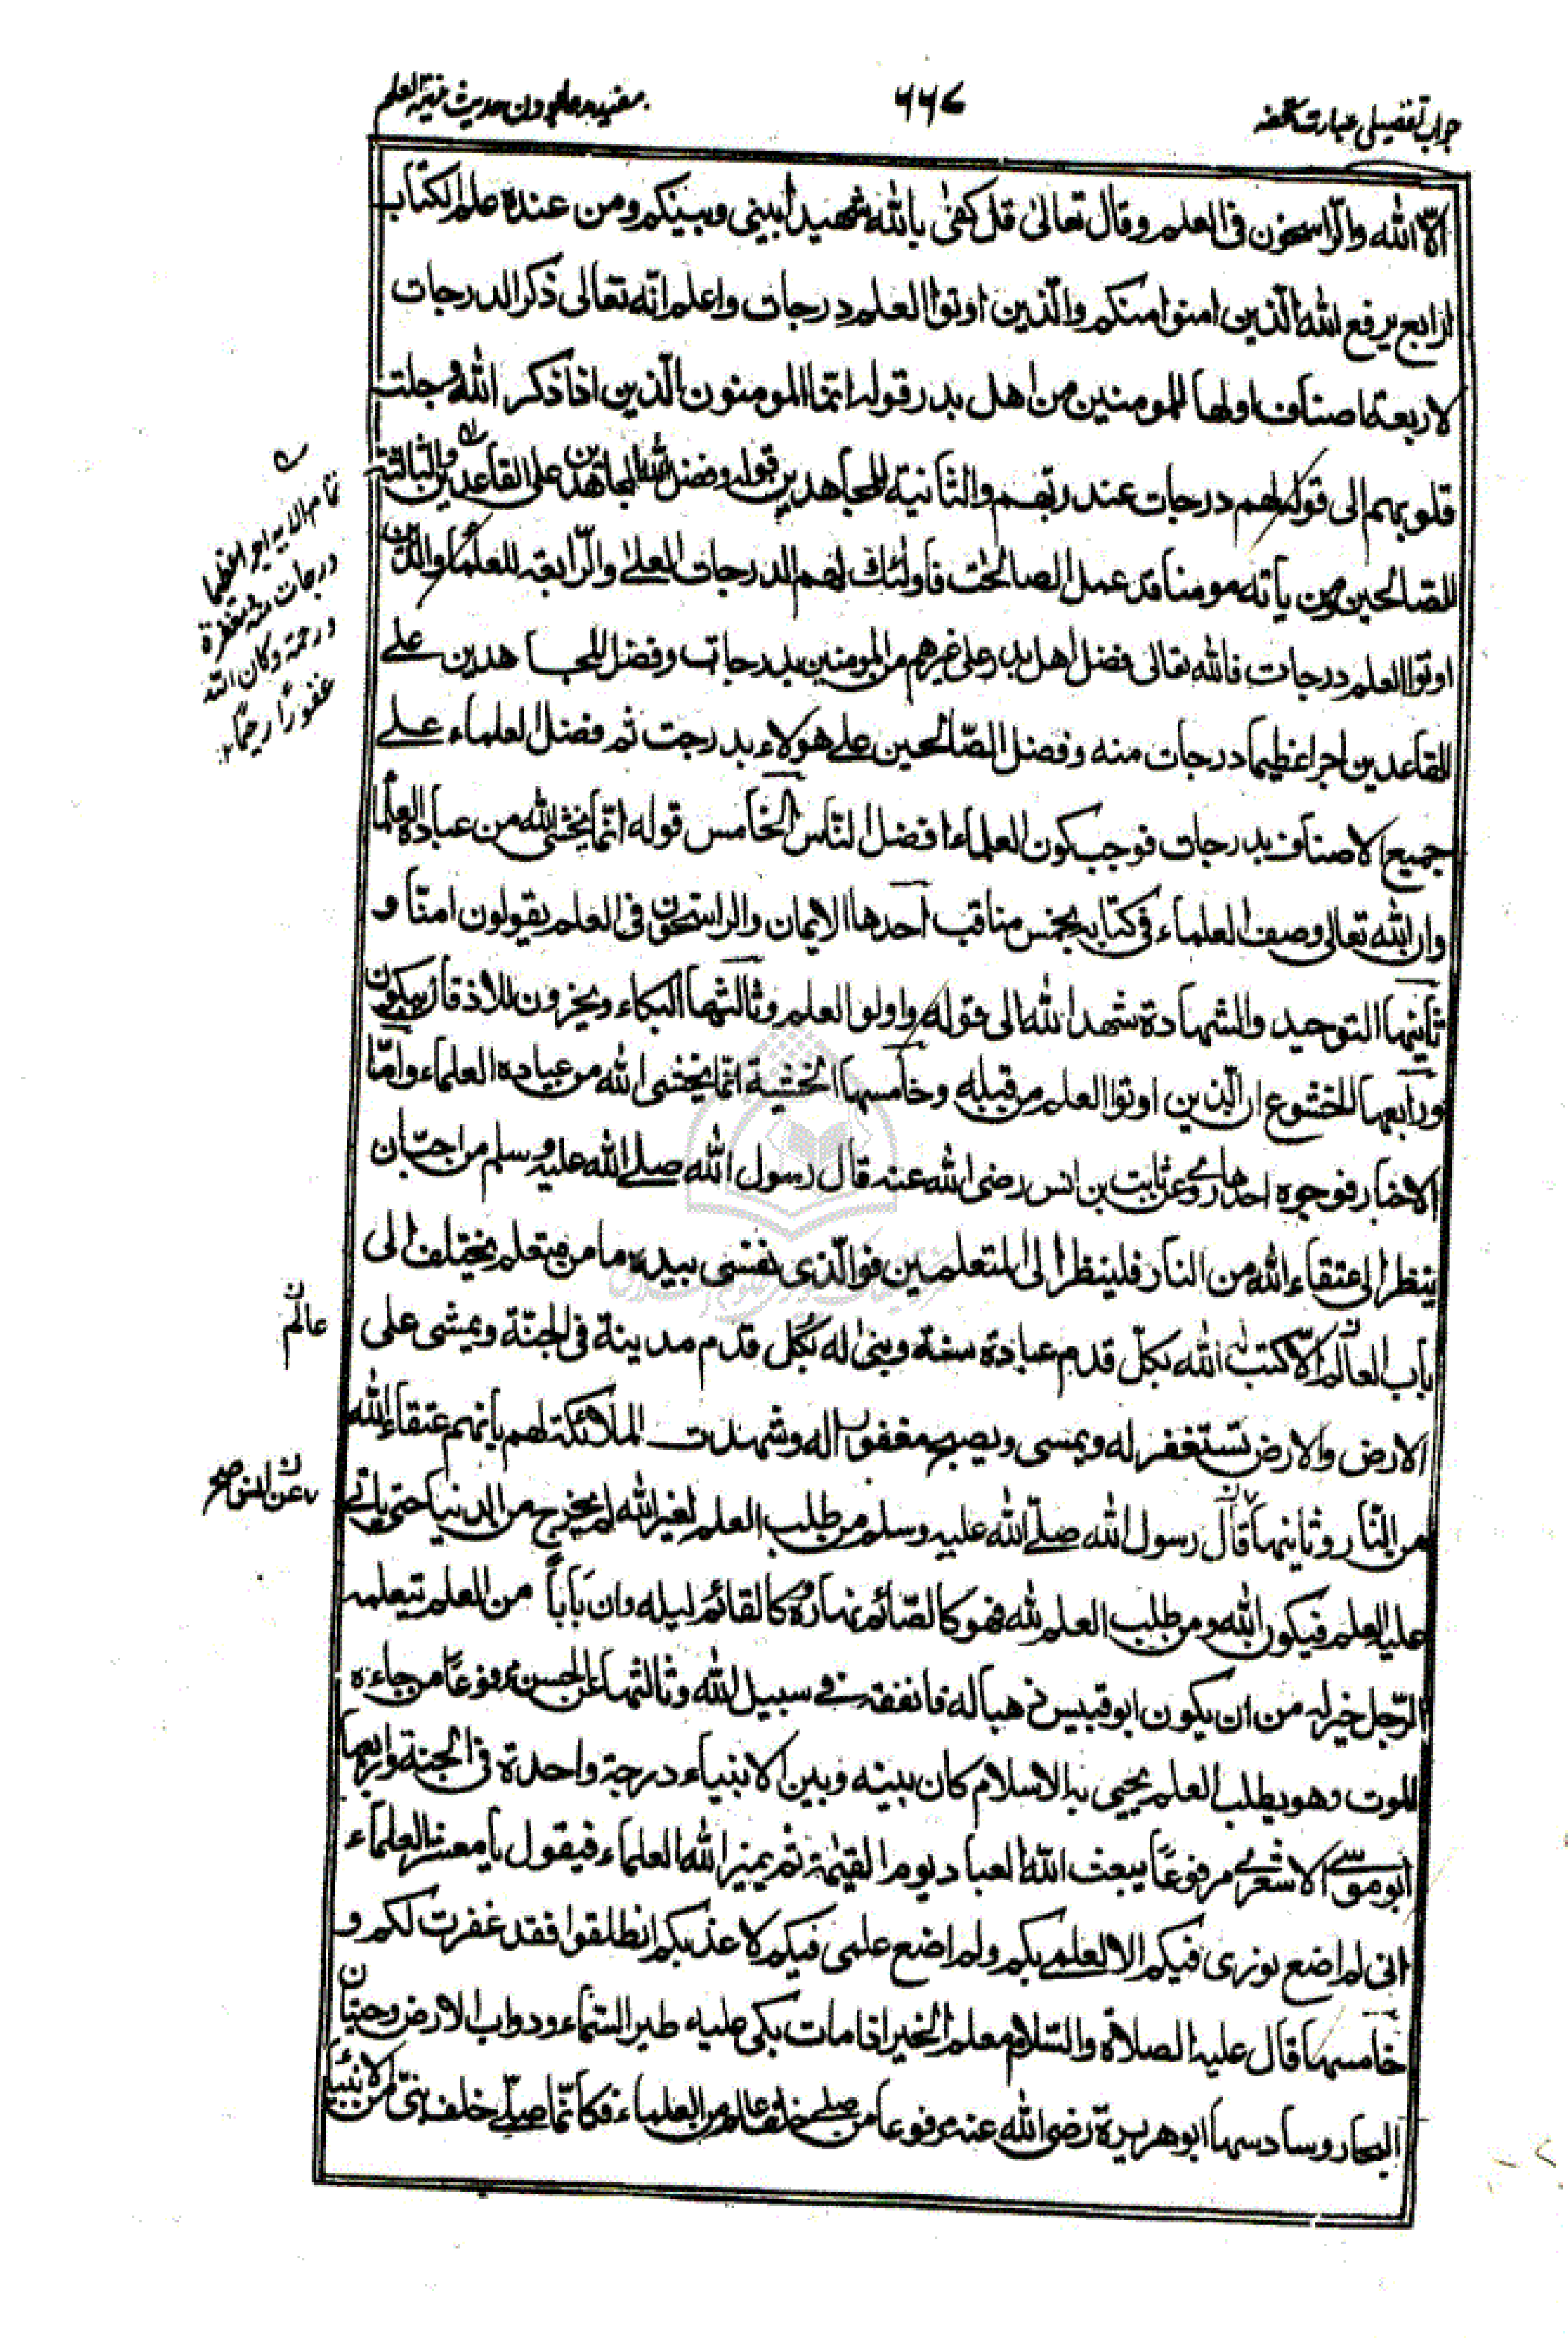 جواب تفصیلی عبارت تحفہ
۶۶۷
مفید بودن حدیث مدینۃ العلم
الّا الله والرّاسخون فی العلم وقال تعالیٰ قل کفیٰ بالله شهیداً بینی وبینکم ومن عنده علم الکتاب
الرابع یرفع الله الّذین امنوا منکم والّذین اوتوا العلم درجات واعلم انّه تعالی ذکر الدرجات
لاربعة اصناف اولها للمومنین من اهل بدر قوله انّما المومنون الّذین اذا ذکر الله وجلت
قلوبهم الی قوله لهم درجات عند ربّهم والثانیة للمجاهدین قوله وفضل الله المجاهدین علی القاعدین والثالثة
للصالحین ومن یأته مومنا قد عمل الصالحات فاولئك لهم الدرجات العلیٰ والرّابعة للعلماء والذین
اوتوا العلم درجات فالله تعالی فضل اهل بدر علی غیرهم من المومنین بدرجات وفضل المجاهدین علے
القاعدین اجرا عظیما درجات منه وفضل الصّالحین علے هولاء بدرجت ثم فضل العلماء علے
جمیع الاصناف بدرجات فوجب کون العلماء افضل النّاس الخامس قوله انّما یخشی الله من عباده العلما
وان الله تعالی وصف العلماء فی کتابه بخمس مناقب احدها الایمان والراسخون فی العلم یقولون امنّا و
ثانیها التوحید والشهادة شهد الله الی قوله واولو العلم وثالثها البکاء ویخرون للاذقان یبکون
ورابعها الخشوع ان الّذین اوتوا العلم من قبله وخامسها الخشیة انّما یخشی الله من عباده العلماء وامّا
الاخبار فوجوه احدها روے عن ثابت بن انس رضی الله عنه قال رسول الله صلے الله علیه وسلم من احبّ ان
ینظر الی عتقاء الله من النار فلینظر الی المتعلمین فوالّذی نفسی بیده ما من متعلم یختلف الی
باب العالم الّا کتب الله بکلّ قدم عبادة سنة وبنیٰ له بکل قدم مدینة فی الجنّة ویمشی علی
الارض والارض تستغفر له ویمسی ویصبح مغفورا له وشهدت الملائکة لهم بانهم عتقاء الله
من النّار وثانیها قال رسول الله صلّے الله علیه وسلم من طلب العلم لغیر الله لم یخرج من الدنیا حتی یاتے
علیه العلم فیکون لله ومن طلب العلم لله فهو کالصّائم نهاره وکالقائم لیله وان باباً من العلم یتعلمه
الرّجل خیر له من ان یکون ابو قبیس ذهبا له فانفقه فے سبیل الله وثالثها عن الحسن مرفوعاً من جاءه
الموت وهو یطلب العلم یحیی به الاسلام کان بینه وبین الانبیاء درجة واحدة فی الجنة ورابعها
ابو موسیٰ الاشعری مرفوعاً یبعث الله العباد یوم القیٰمة ثم یمیز الله العلماء فیقول یا معشر العلماء
انی لم اضع نوری فیکم الا لعلمے بکم ولم اضع علمی فیکم لاعذبکم انطلقوا فقد غفرت لکم و
خامسها قال علیه الصلاة والسّلام معلم الخیر اذا مات بکی علیه طیر السّماء ودواب الارض وحیتان
البحار وسادسها ابو هریرة رضی الله عنه مرفوعا من صلے خلف عالم من العلماء فکانّما صلّے خلف نبیّ من الانبیاء
تمام الایه اجرا عظیما
درجات منه ومغفرة
ورحمة وکان الله
غفورًا رحیمًا
عالم
عن انس صح